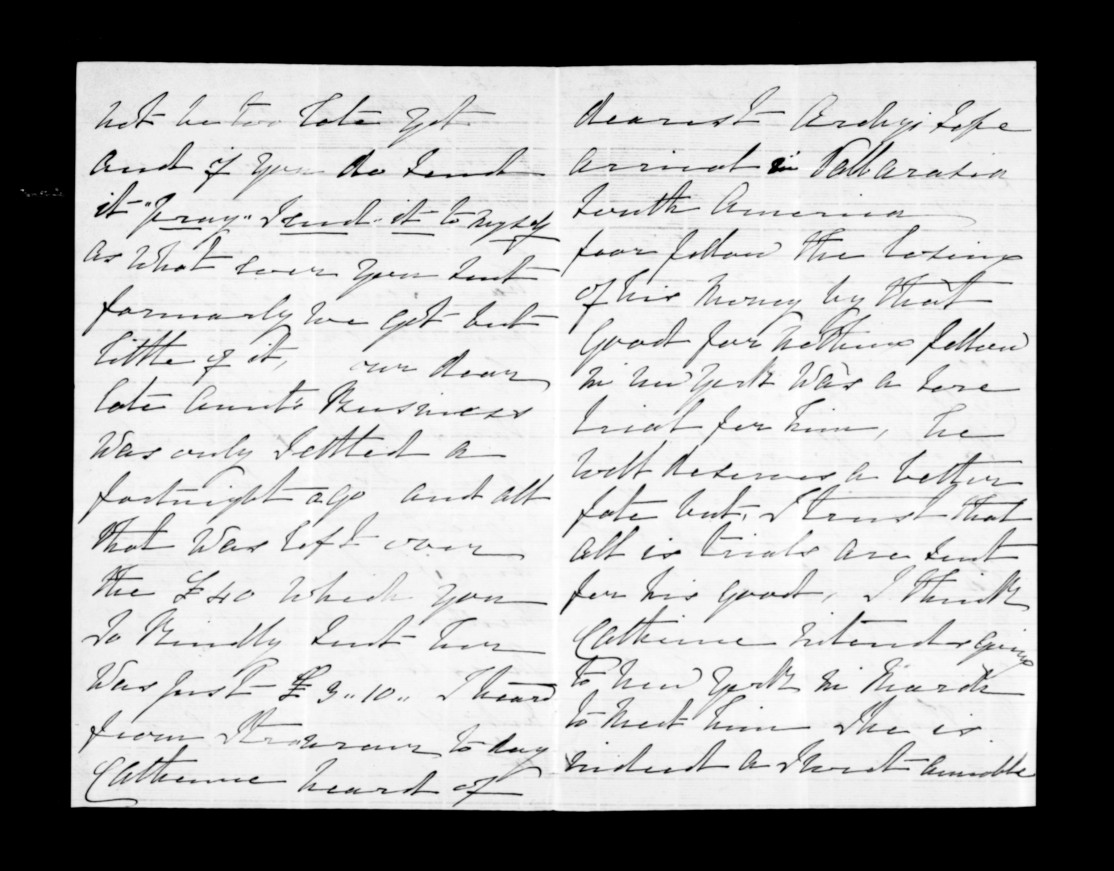 not be too late yet
and if you do send
it "pray" send it to myself
as what ever you sent
formarly we got but
little of it, our dear
late aunt's Business
was only settled a
fortnight ago and all
that was left over
the £40 which you
so kindly sent her
was just £3..10.. I heard
from to day
Catherine heard of
dearest Archys safe
arrival in
South America
poor fellow the losing
of his money by that
good for nothing fellow
in new york was a sore
trial for him, he
well deserves a better
fate but, I trust that
all is trials are sent
for his good, I think
Catherine intends going
to new york in March
to meet him She is
indeed a sweet amiable